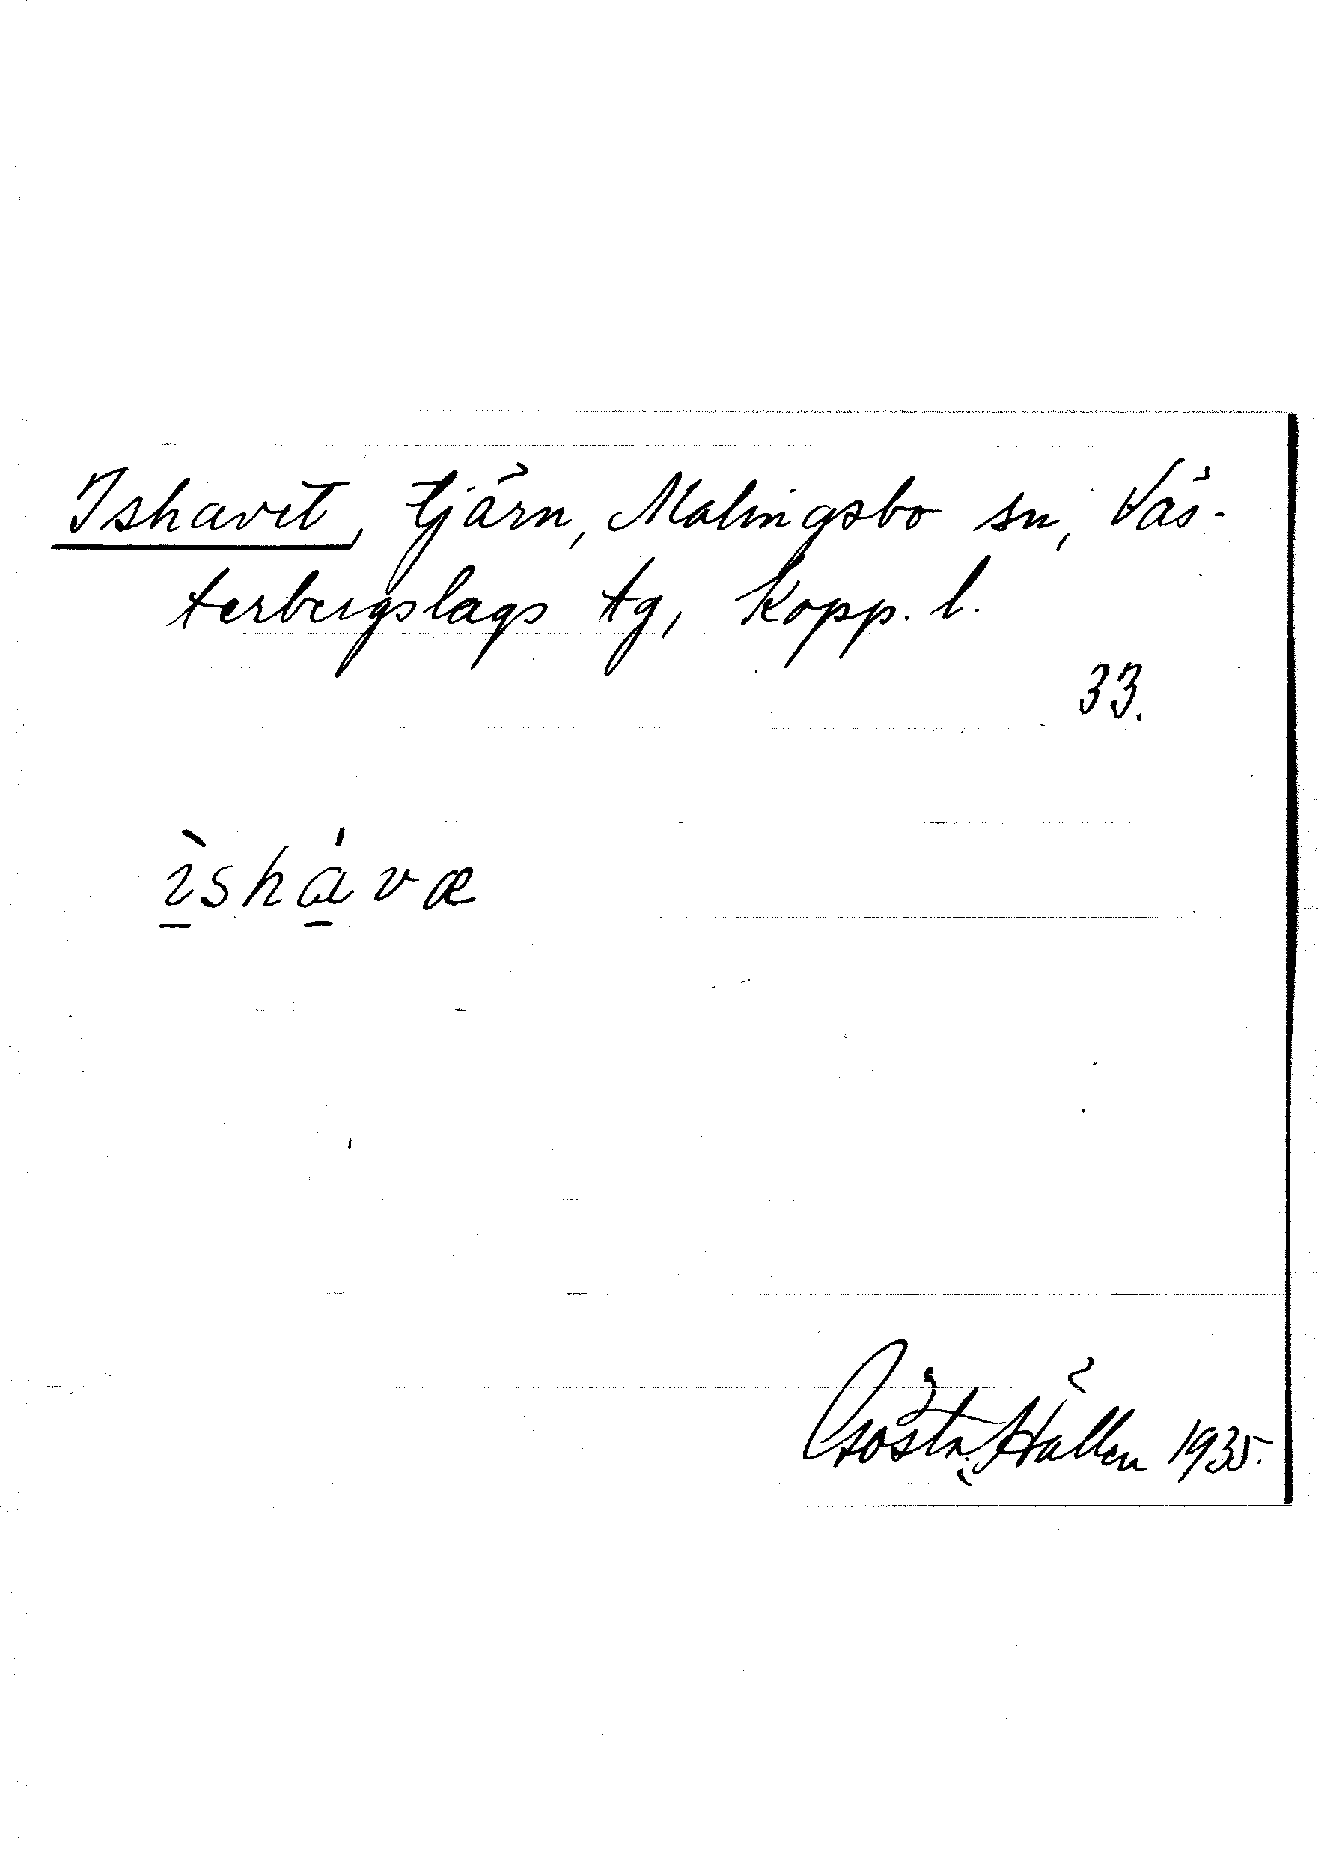 Ishavet, tjärn, Malingsbo sn, Väs-
terbergslags tg, Kopp. l.
33.
ìshávæ
Gösta Hällen 1935.